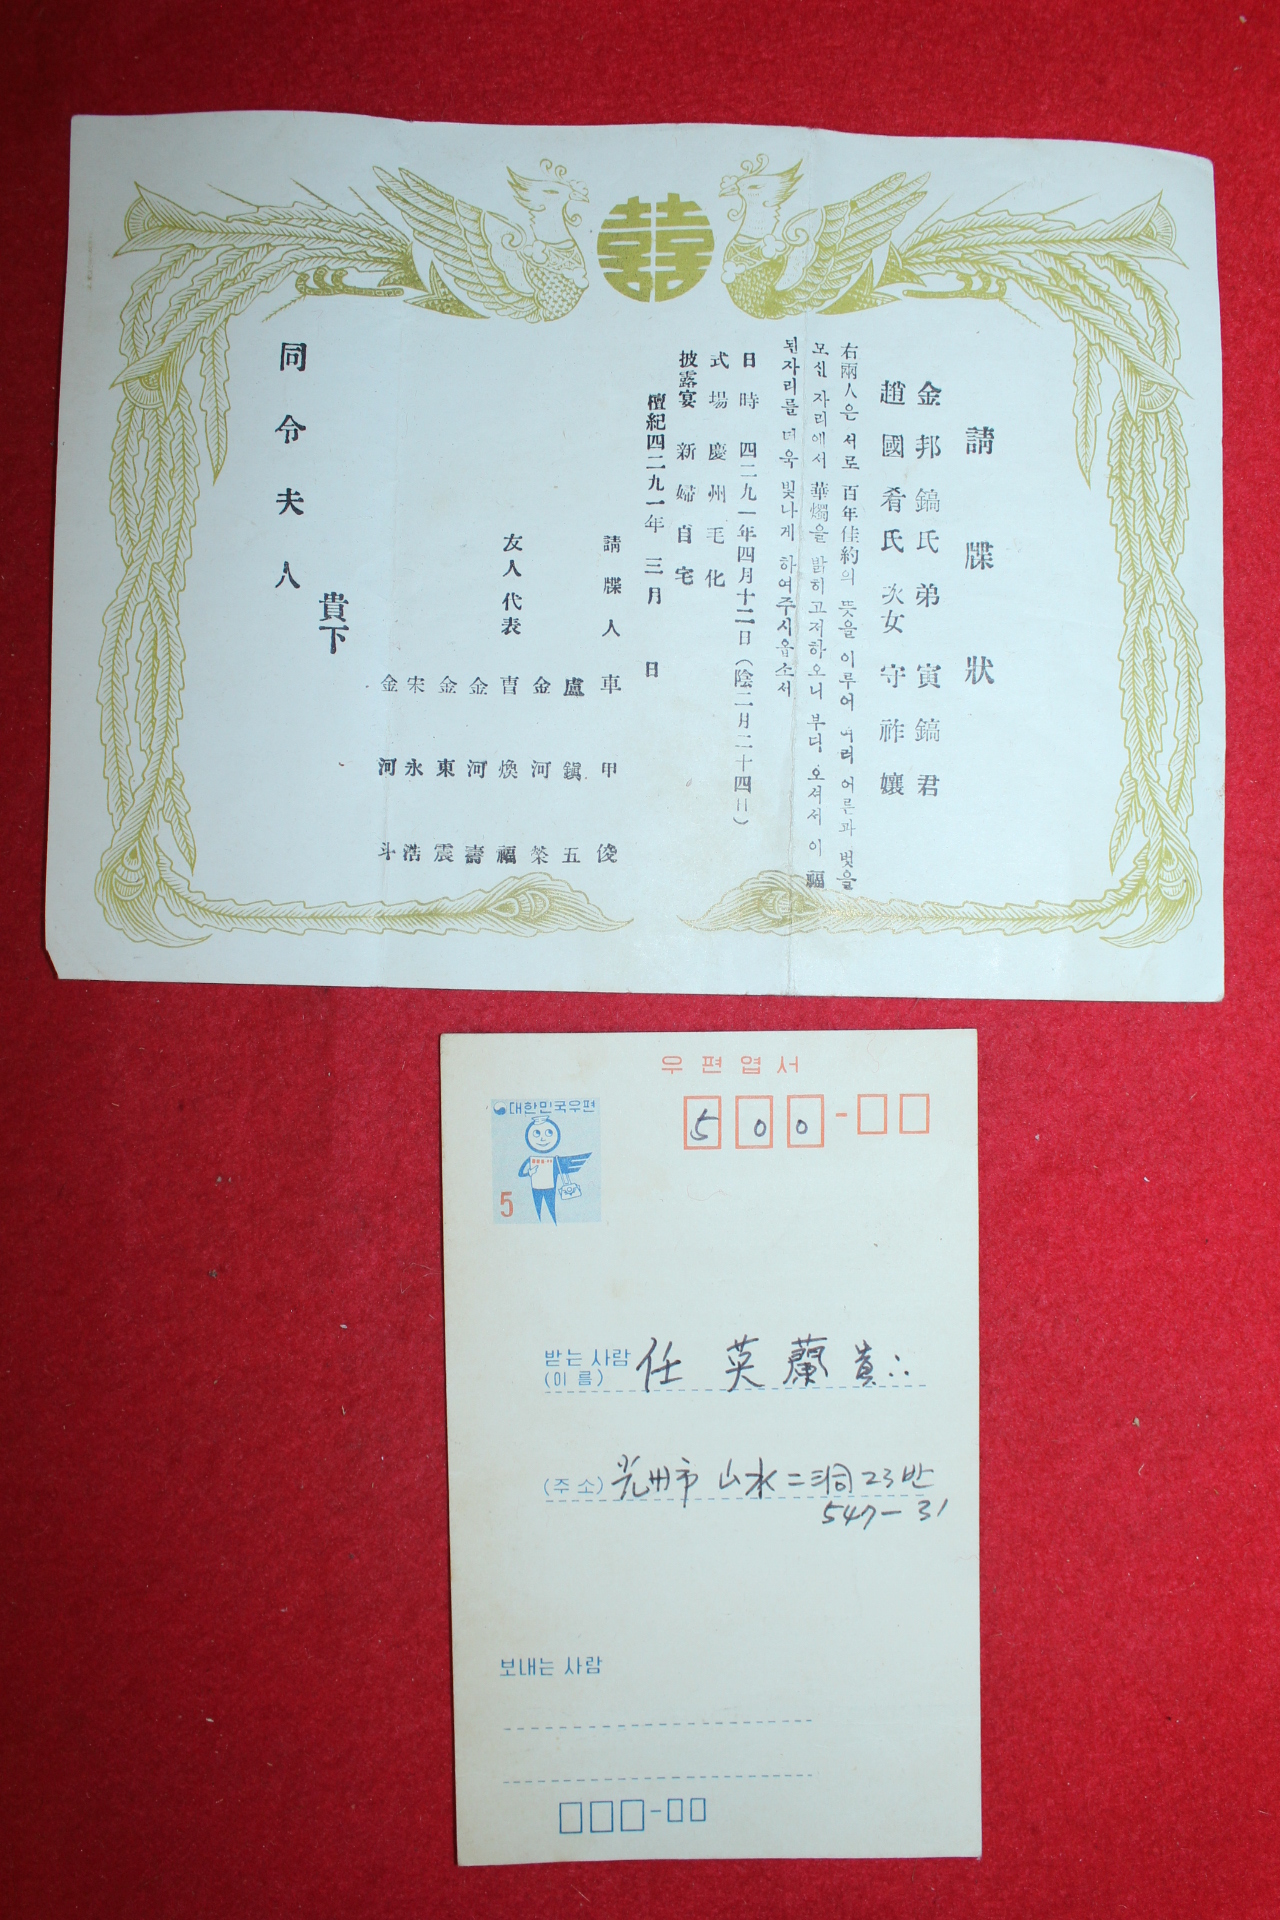 囍
請牒狀
金邦鎬氏弟 寅鎬君
趙國肴氏次女 守祚孃
右兩人은 서로 百年佳約의 뜻을 이루어 여러 어른과 벗을
모신 자리에서 華燭을 밝히고저하오니 부디 오셔서 이 福
된자리를 더욱 빛나게 하여주시옵소서
日時 四二九一年四月十二日(陰二月二十四日)
式場 慶州毛化
披露宴 新婦自宅
檀紀四二九一年 三月 日
請牒人 車甲俊
盧鎭五
金河榮
友人代表 曺煥福
金河壽
金東震
宋永浩
金河斗
貴下
同令夫人
우편엽서
대한민국우편
5
500-
받는 사람
(이 름) 任英蘭 貴
(주 소) 光州市 山水二洞 23반
547-31
보내는 사람